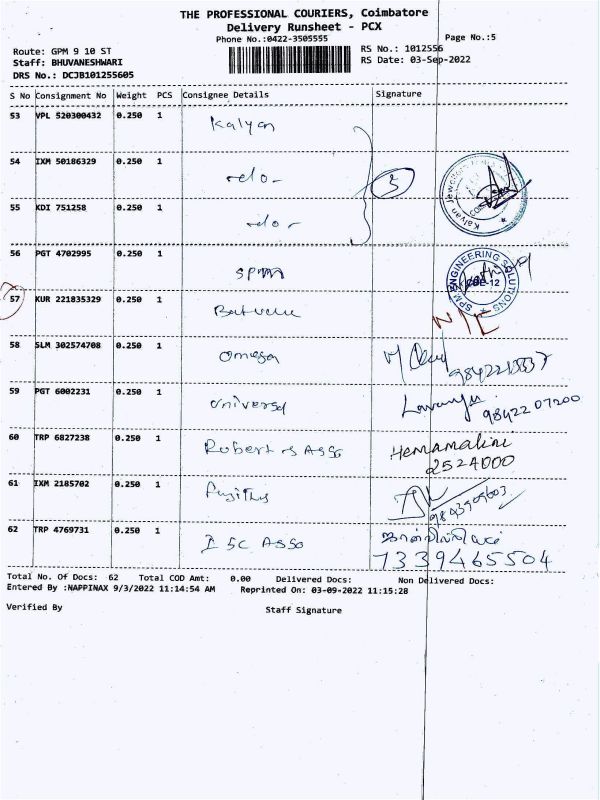 THE PROFESSIONAL COURIERS, Coimbatore
Delivery Runsheet - PCX
Phone No.:0422-3505555
Page No.:5
Route: GPM 9 10 ST
RS No.: 1012556
Staff: BHUVANESHWARI
RS Date: 03-Sep-2022
DRS No.: DCJB101255605
S No Consignment No Weight PCS Consignee Details Signature
53 VPL 520300432 0.250 1 Kalyan
54 IXM 50186329 0.250 1 -do- 3
55 KDI 751258 0.250 1 -do-
56 PGT 4702995 0.250 1 SPM
SPM ENGINEERING SOLUTIONS
CBE-12
57 KUR 221835329 0.250 1
58 SLM 302574708 0.250 1 Omega
59 PGT 6002231 0.250 1 Universal Lavanya 98422 07200
60 TRP 6827238 0.250 1 Robert s Asso Hemamalini
2524000
61 IXM 2185702 0.250 1 Fujitus
62 TRP 4769731 0.250 1 ISC Asso
7339465504
Total No. Of Docs: 62 Total COD Amt: 0.00 Delivered Docs: Non Delivered Docs:
Entered By :NAPPINAX 9/3/2022 11:14:54 AM Reprinted On: 03-09-2022 11:15:28
Verified By Staff Signature